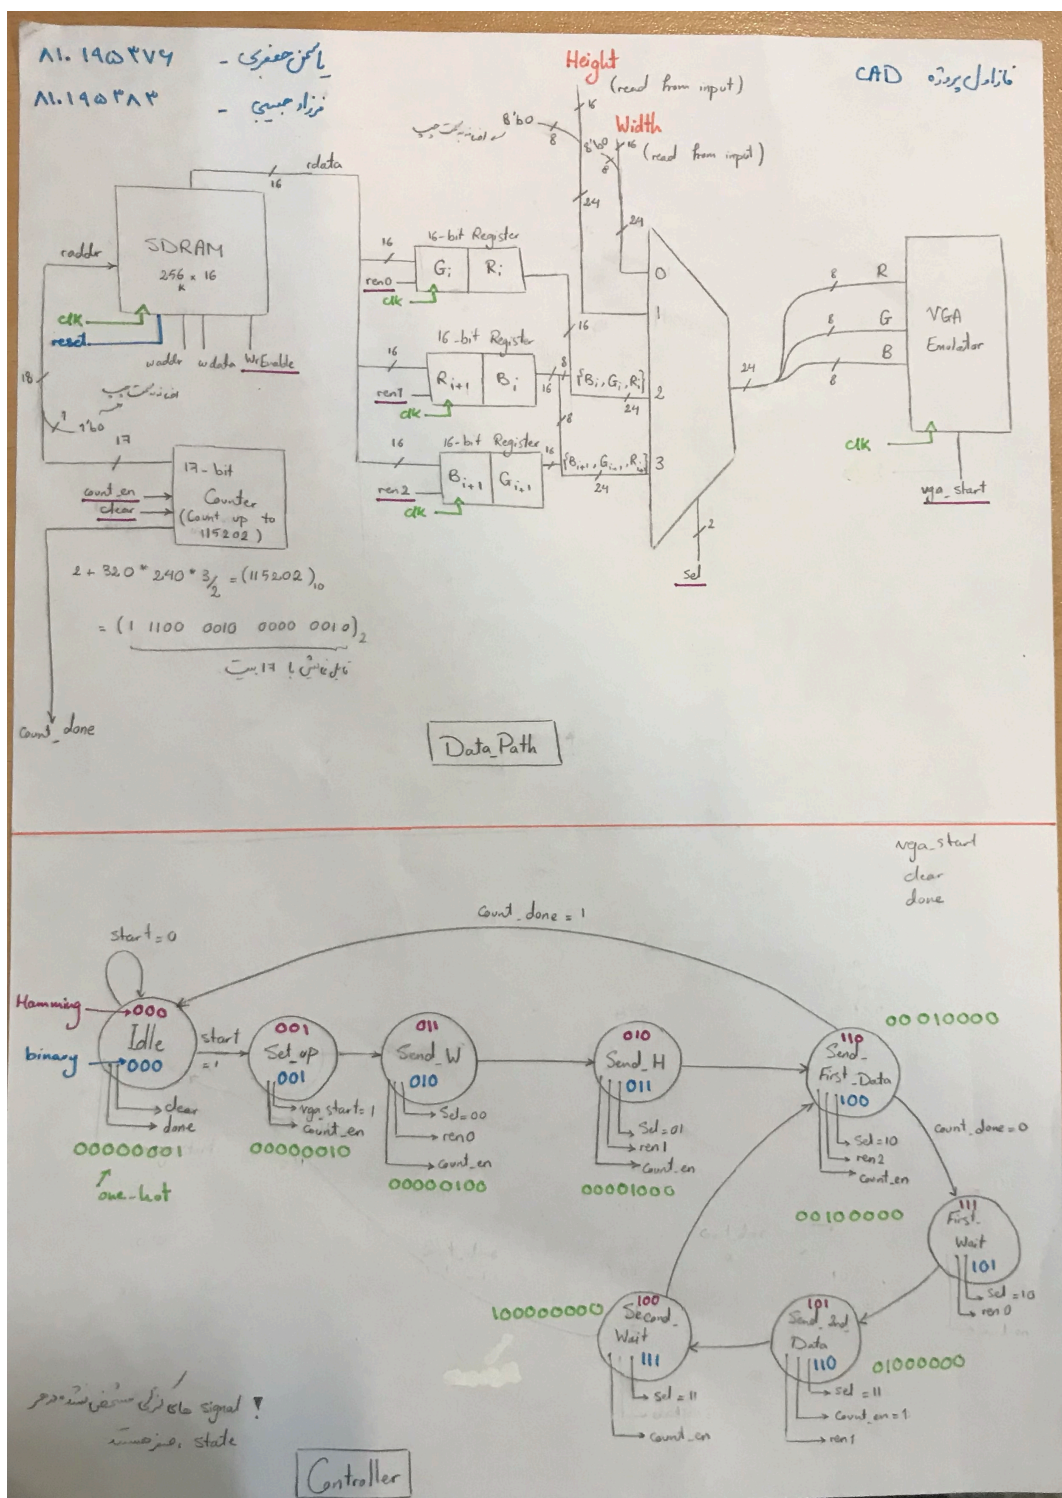 فاز اول پروژه CAD
یاسمن جعفری - ۸۱۰۱۹۵۳۷۶
فرزاد حبیبی - ۸۱۰۱۹۵۳۸۳
Height
(read from input)
16
8'b0
8
Width
8'b0
16
(read from input)
8
24
24
rdata
16
SDRAM
256 K × 16
raddr
clk
reset
waddr
wdata
WrEnable
18
1
1'b0
17
17-bit
Counter
(Count up to
115202)
count_en
clear
2 + 320 * 240 * 3/2 = (115202)10
= (1 1100 0010 0000 0010)2
قابل نمایش با ۱۷ بیت
count_done
16
16-bit Register
Gi Ri
ren0
clk
16
16
16-bit Register
Ri+1 Bi
ren1
clk
16
8
{Bi, Gi, Ri}
24
16
16-bit Register
Bi+1 Gi+1
ren2
clk
16
8
{Bi+1, Gi+1, Ri+1}
24
0
1
2
3
2
sel
24
8
R
8
G
8
B
VGA
Emulator
clk
vga_start
Data_Path
vga_start
clear
done
count_done = 1
start = 0
Hamming
000
Idle
binary
000
clear
done
00000001
one-hot
start
=1
001
Set_up
001
vga_start=1
count_en
00000010
011
Send_W
010
Sel=00
ren0
count_en
00000100
010
Send_H
011
Sel=01
ren1
count_en
00001000
00010000
110
Send_
First_Data
100
Sel=10
ren2
count_en
count_done=0
00100000
111
First_
Wait
101
Sel=10
ren0
101
Send_2nd_
Data
110
sel=11
count_en=1
ren1
01000000
100000000
100
Second_
Wait
111
sel=11
count_en
! signal های کنترلی مشخص نشده در هر
state، صفر هستند
Controller